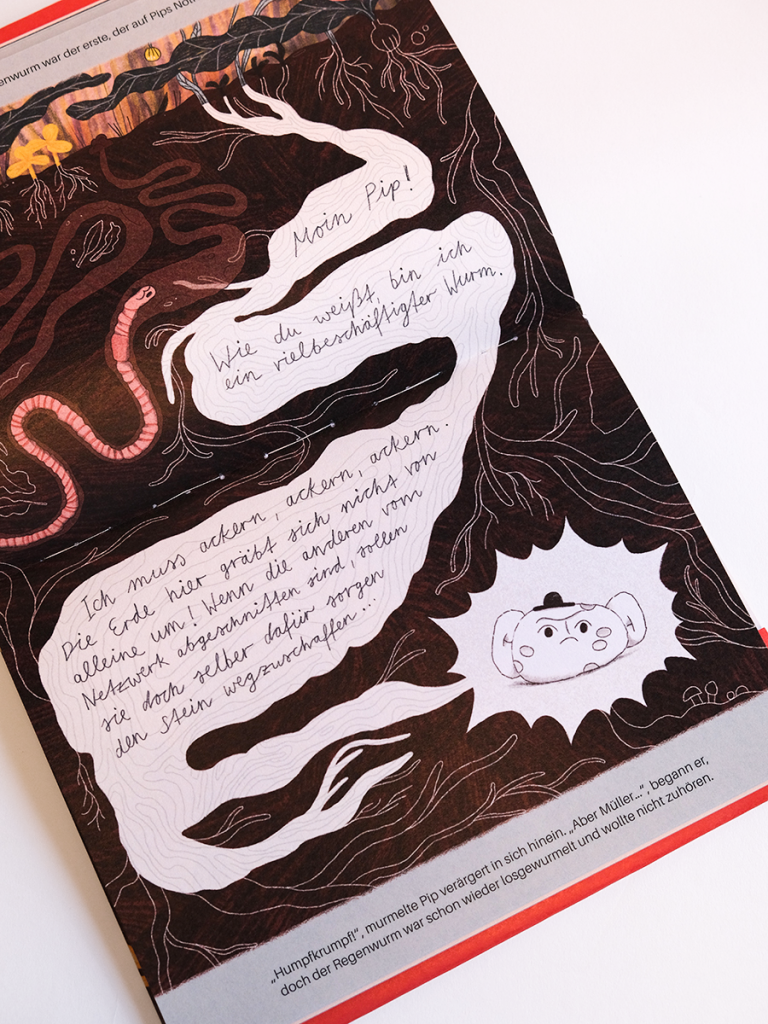 enwurm war der erste, der auf Pips Not
Moin Pip!
Wie du weißt, bin ich
ein vielbeschäftigter Wurm.
Ich muss ackern, ackern, ackern.
Die Erde hier gräbt sich nicht von
alleine um! Wenn die anderen vom
Netzwerk abgeschnitten sind, sollen
sie doch selber dafür sorgen
den Stein wegzuschaffen...
„Humpfkrumpf!“, murmelte Pip verärgert in sich hinein. „Aber Müller...“, begann er,
doch der Regenwurm war schon wieder losgewurmelt und wollte nicht zuhören.